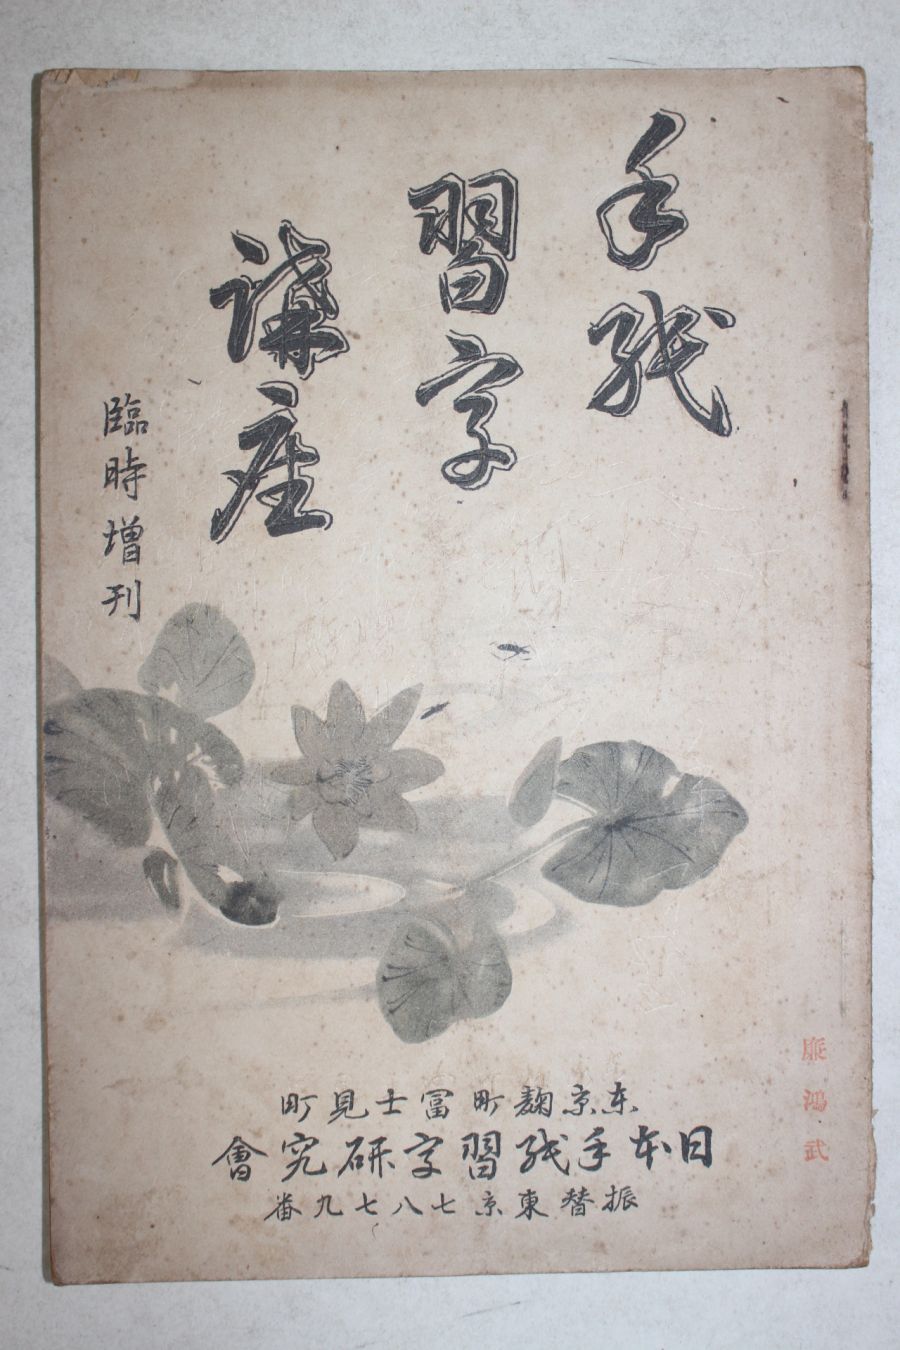 手紙
習字
講座
臨時増刊
東京麹町富士見町
日本手紙習字研究會
振替東京七八七九番
廉鴻武